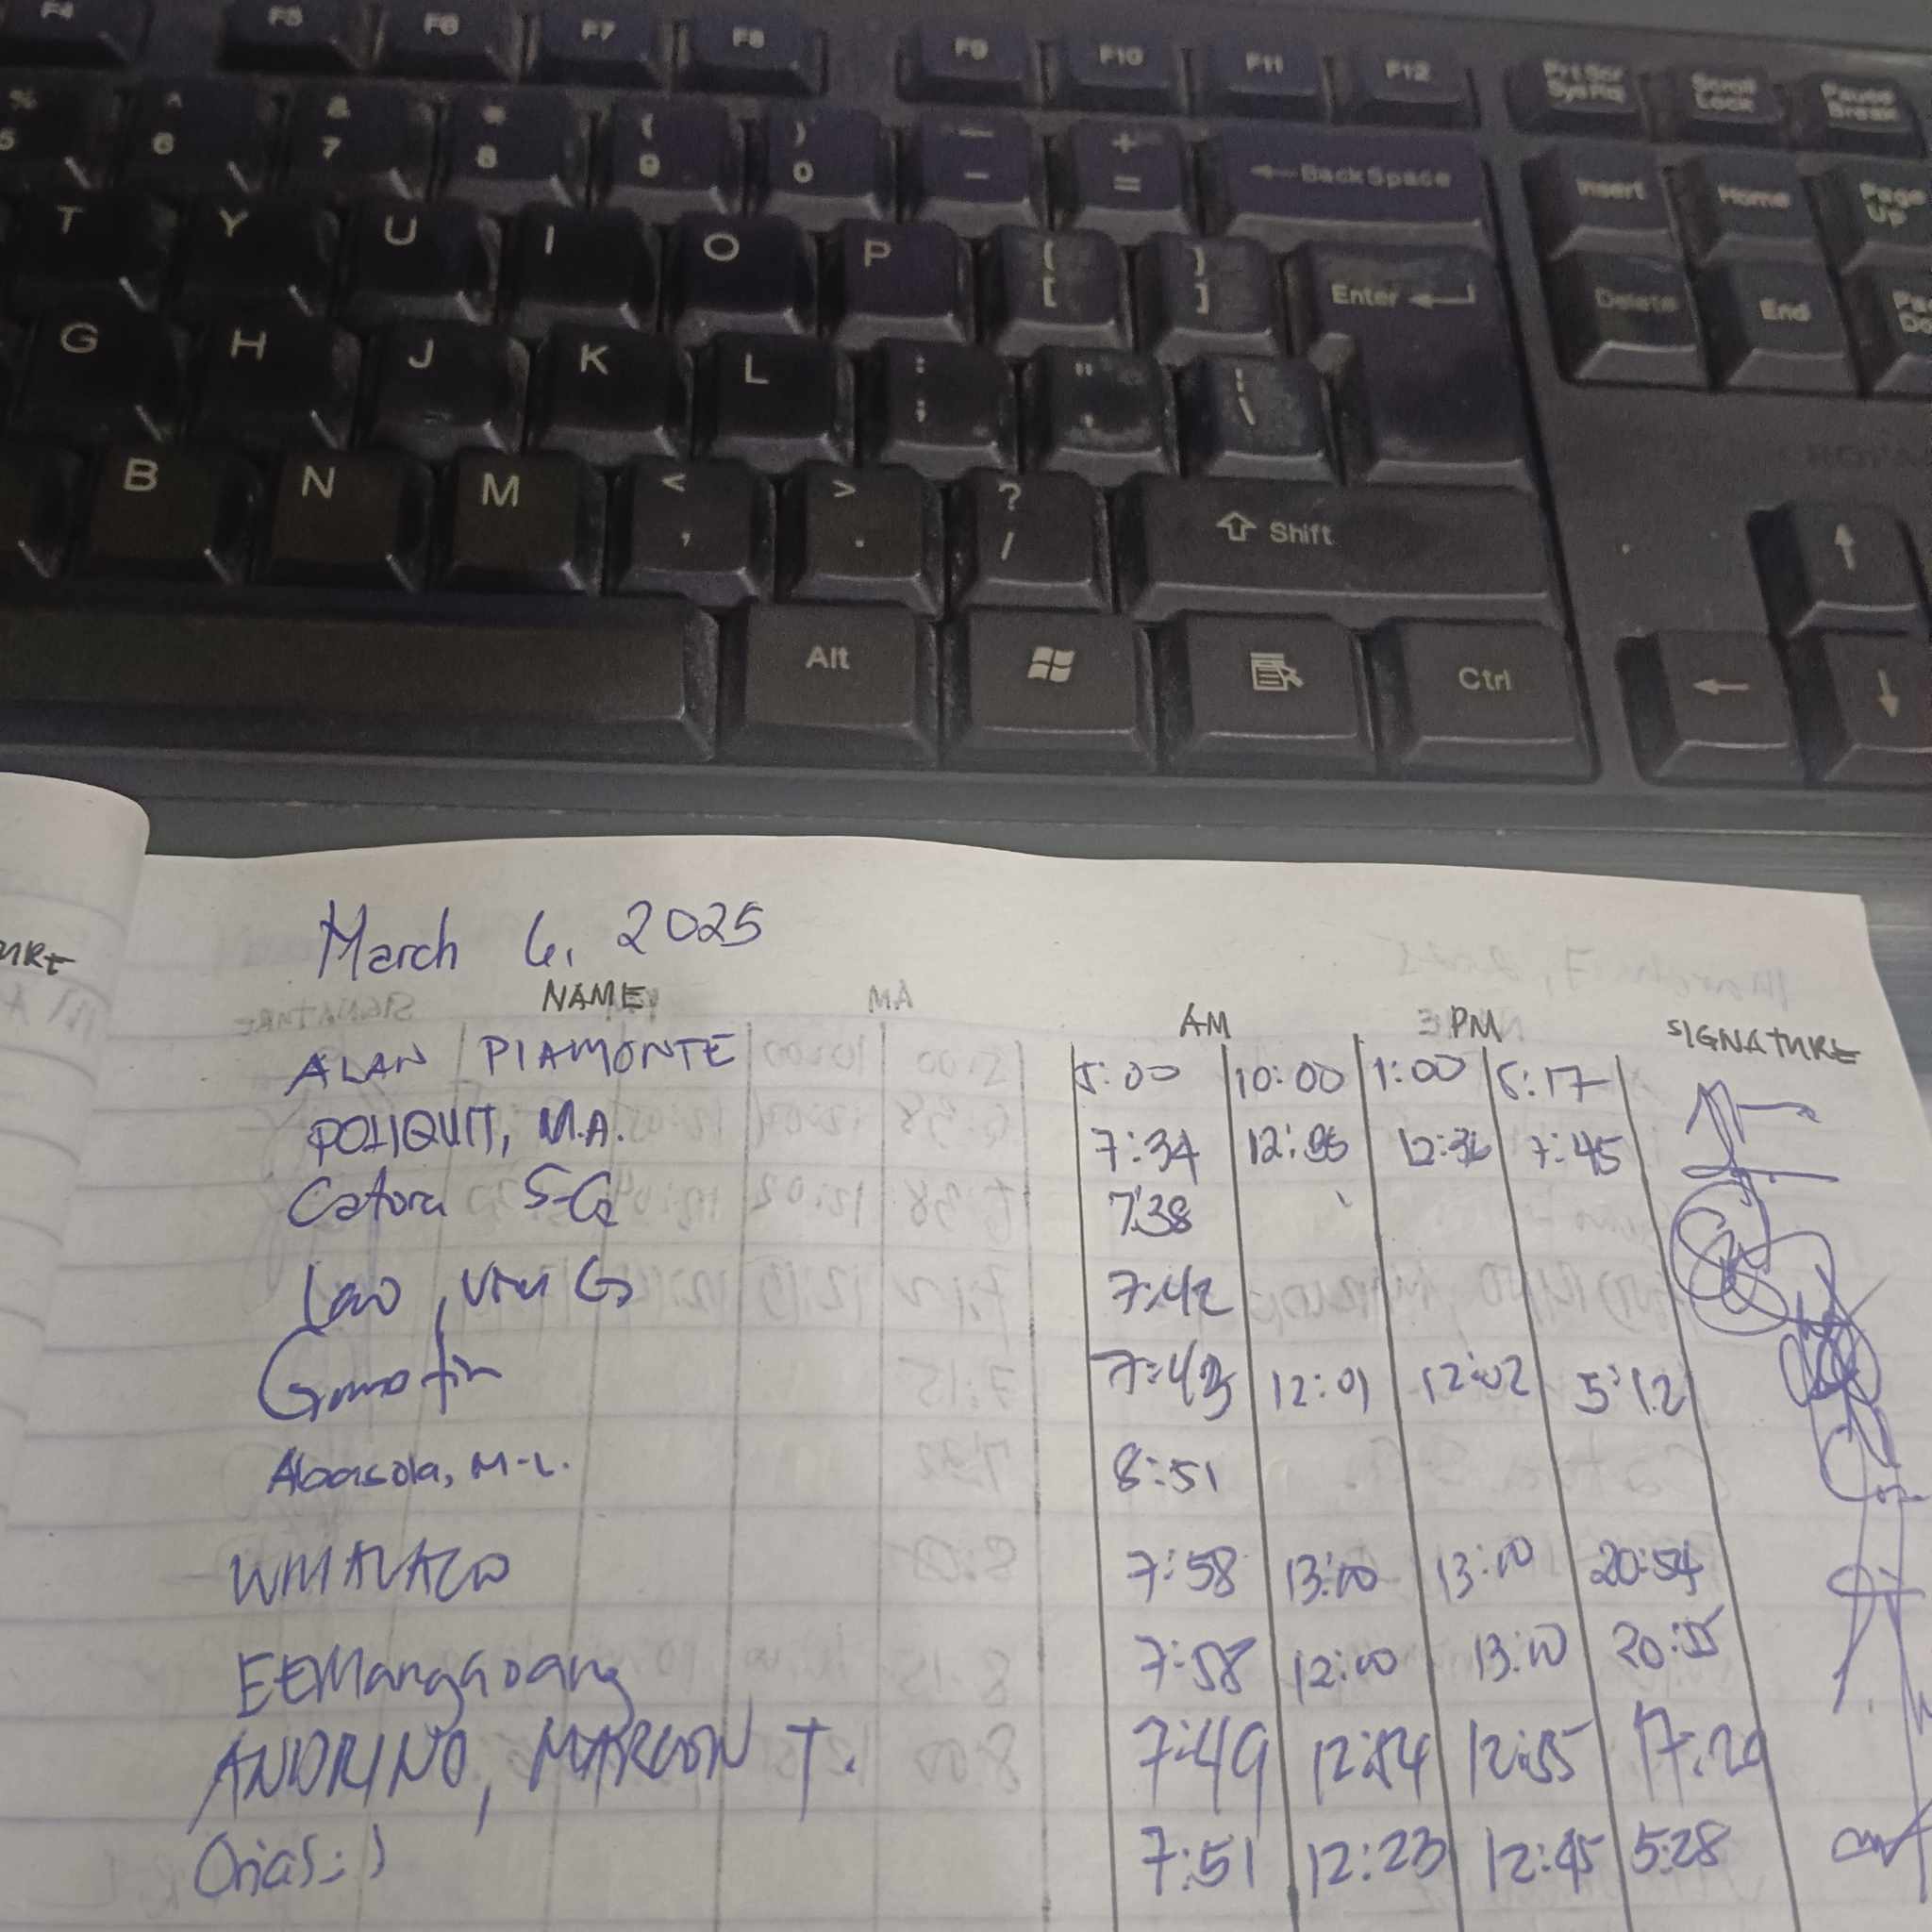 F4 F5 F6 F7 F8 F9 F10 F11 F12 PrtScr SysRq Scroll Lock Pause Break
% 5 ^ 6 & 7 * 8 ( 9 ) 0 — - + = BackSpace Insert Home Page Up
T Y U I O P { [ } ] Enter Delete End
G H J K L : ; " ' | \
B N M < , > . ? / Shift
Alt Ctrl
March 6, 2025
NAME AM PM SIGNATURE
ALAN PIAMONTE 5:00 10:00 1:00 5:17
POLIQUIT, M.A. 7:34 12:36 7:45
Catora S-G 7:38
Lao, G 7:42
7:43 12:01 12:02 5:12
Abasola, M-L. 8:51
7:58 13:00 13:00 20:54
EEManggabang 7:58 12:00 13:00 20:55
ANDRINO, MARLON T. 7:49 12:54 12:55 17:20
Orias: J 7:51 12:23 12:45 5:28